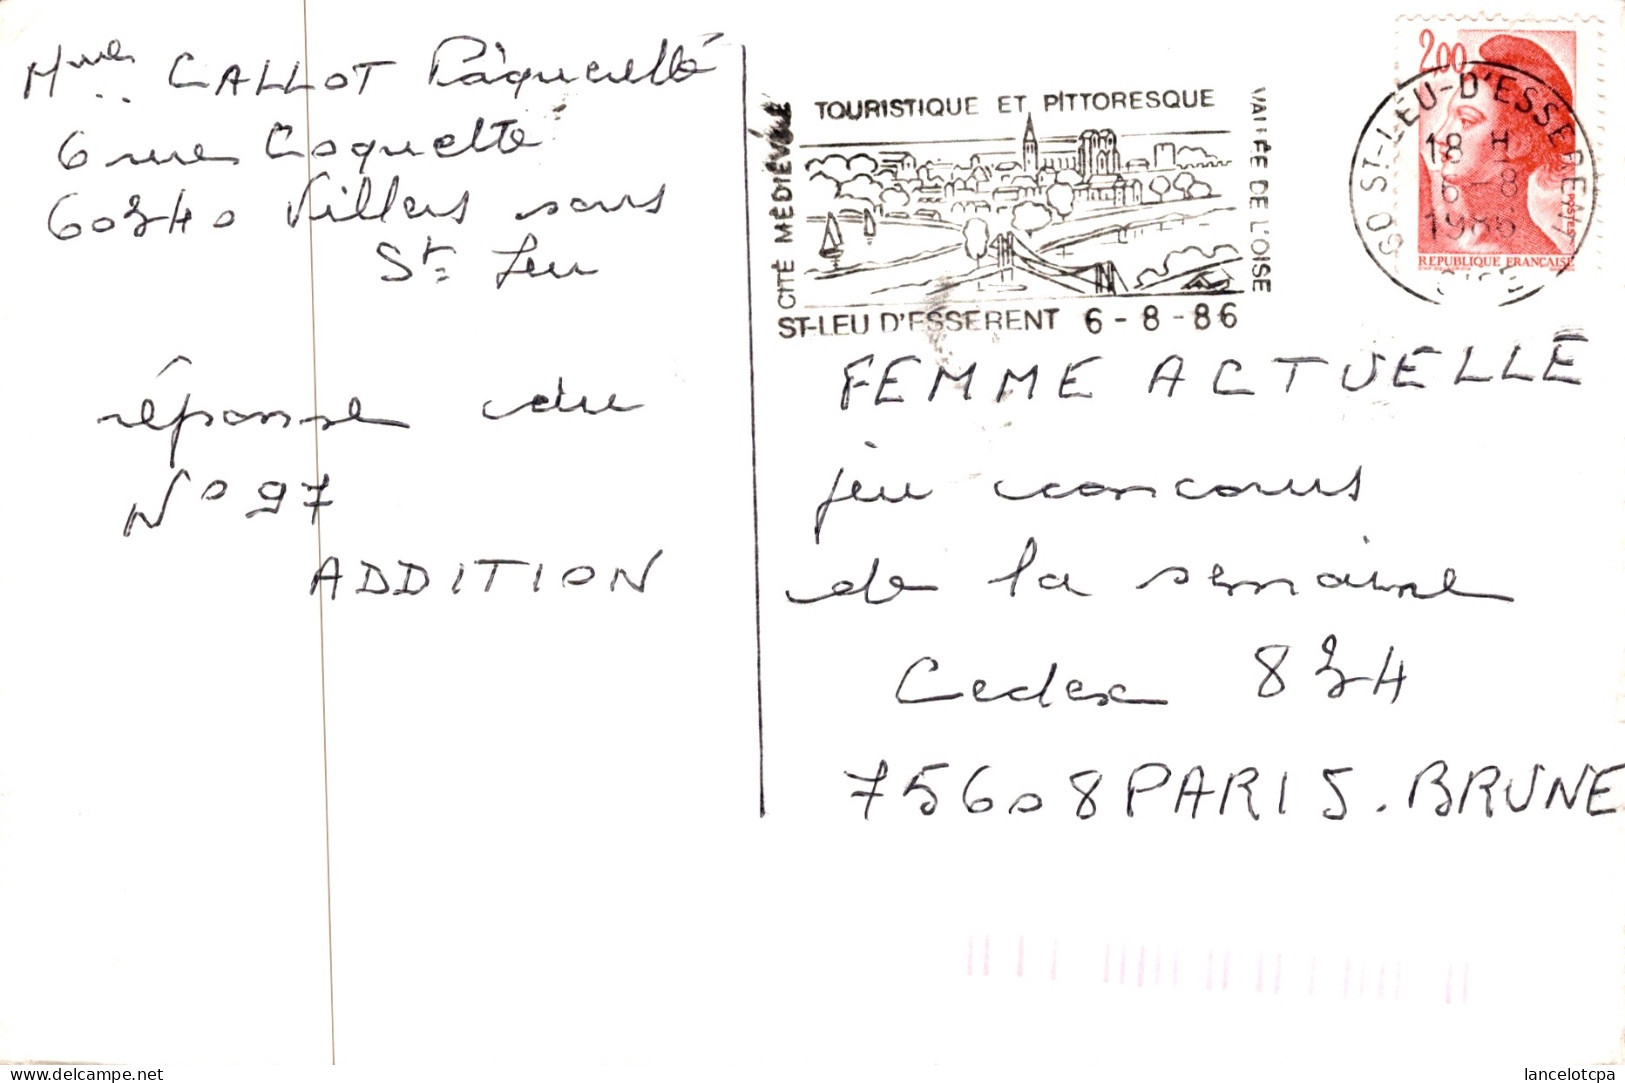 Mme CALLOT Pâquerette
6 rue Coquette
60340 Villers sous
St Leu
réponse du
N° 97
ADDITION
CITÉ MÉDIÉVALE
TOURISTIQUE ET PITTORESQUE
VALLÉE DE L'OISE
ST-LEU D'ESSERENT 6-8-86
2,00
60 ST-LEU-D'ESSERENT
18 H
6-8
1986
OISE
POSTES
REPUBLIQUE FRANÇAISE
FEMME ACTUELLE
jeu concours
de la semaine
Cedex 834
75608 PARIS. BRUNE
www.delcampe.net
lancelotcpa